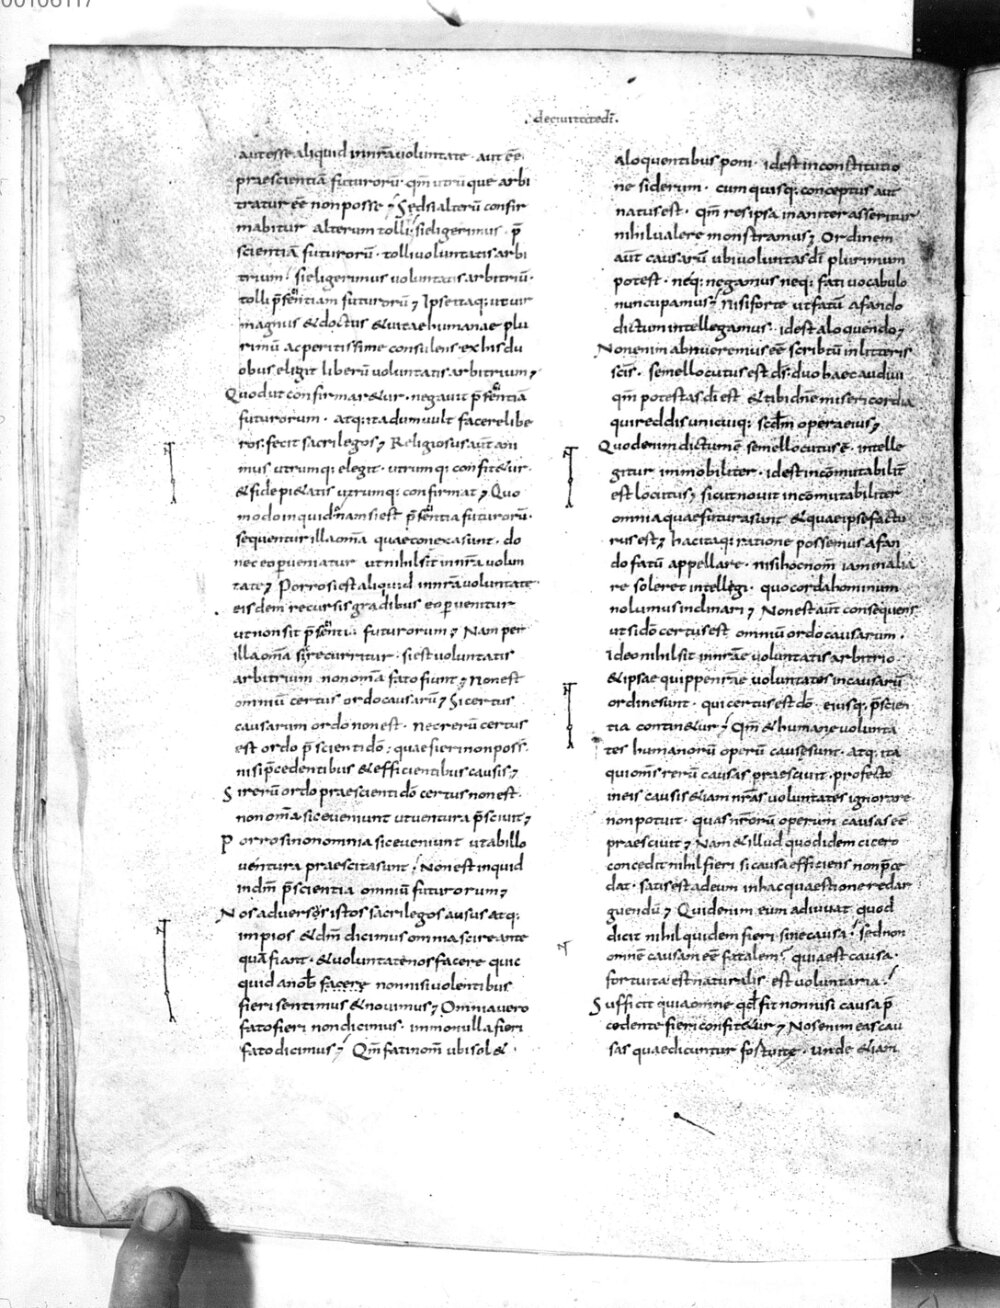 00106117
de ciuitate di.
aut esse aliquid in nr̄a uoluntate · aut eē
praescientiā futurorū · qm̄ utrūque arbi
tratur eē non posse ; Sed si alterū confir
mabitur alterum tolli · si eligerimus · p̄
scientiā futurorū · tolli uoluntatis arbi
trium · si eligerimus uoluntatis arbitriū ·
tolli p̄scientiam futurorū ; Ipse itaq: ut uir
magnus & doctus & uitae humanae plu
rimū ac peritissime consulens ex his du
obus eligit liberū uoluntatis arbitrium ;
Quod ut confirmar&ur · negauit p̄scientiā
futurorum · atq: ita dum uult facere libe
ros · fecit sacrilegos ; Religiosus aut̄ ani
mus utrumq: elegit · utrumq: confit&ur ·
& fide pi&atis utrumq: confirmat ; Quo
modo inquid · nam si est p̄scientia futurorū ·
sequentur illa om̄a quae conexa sunt · do
nec eo perueniatur ut nihil sit in nr̄a uolun
tate ; Porro si est aliquid in nr̄a uoluntate
eisdem recursis gradibus eo peruenitur
ut non sit p̄scientia futurorum ; Nam per
illa om̄a sic recurritur · si est uoluntatis
arbitrium non om̄a fato fiunt ; Non est
omniū certus ordo causarū ; Si certus
causarum ordo non est · nec rerū certus
est ordo p̄scienti dō · quae fieri non poss̄
nisi p̄cedentibus & efficientibus causis ;
Si rerū ordo praescienti dō certus non est ·
non om̄a sic eueniunt ut uentura p̄sciuit ;
Porro si non omnia sic eueniunt ut ab illo
uentura praescita sunt · Non est inquid
in dō p̄scientia omniū futurorum ;
Nos aduersus istos sacrilegos ausus atq:
impios & dm̄ dicimus omnia scire ante
quā fiant · & uoluntate nos facere quic
quid a nob̄ facere non nisi uolentibus
fieri sentimus & nouimus ; Omnia uero
fato fieri non dicimus · immo nulla fieri
fato dicimus ; Qm̄ fati nom̄ ubi sol&
a loquentibus poni · id est in constitutio
ne siderum · cum quisq: conceptus aut
natus est · qm̄ res ipsa inaniter asseritur
nihil ualere monstramus ; Ordinem
aut̄ causarū ubi uoluntas dī plurimum
potest · neq: negamus neq: fati uocabulo
nuncupamus ; Nisi forte ut fatū a fando
dictum intellegamus · id est a loquendo ;
Non enim abnueremus eē scriptū in litteris
scīs · semel locutus est ds̄ · duo haec audiui
qm̄ potestas dī est & tibi dn̄e misericordia
qui reddis unicuiq: scdm̄ opera eius ;
Quod enim dictum ē semel locutus ē · intelle
gitur immobiliter · id est incōmutabilit̄
est locutus ; sicut nouit incōmutabiliter
omnia quae futura sunt & quae ipse factu
rus est ; hac itaq: ratione possemus a fan
do fatū appellare · nisi hoc nom̄ iam in alia
re soleret intellegi · quo corda hominum
nolumus inclinari ; Non est aut̄ consequens
ut si dō certus est omniū ordo causarum ·
Ideo nihil sit in nr̄ae uoluntatis arbitrio ·
& ipsae quippe nr̄ae uoluntates in causarū
ordine sunt · qui certus est dō · eiusq: p̄scien
tia contin&ur ; Qm̄ & humane uolunta
tes humanorū operū cause sunt · atq: ita
qui om̄s rerū causas praesciuit · profecto
in eis causis &iam nr̄as uoluntates ignorare
non potuit · quas nr̄orū operum causas eē
praesciuit ; Nam & illud quod idem cicero
concedit nihil fieri si causa efficiens non p̄ce
dat · satis est ad eum in hac quaestione redar
guendū ; Quid enim eum adiuuat quod
dicit nihil quidem fieri sine causa · sed non
omnē causam eē fatalem · quia est causa ·
fortuita · est naturalis · est uoluntaria ·
Sufficit quia omne qd̄ fit non nisi causa p̄
cedente fieri confit&ur ; Nos enim eas cau
sas quae dicuntur fortuite · unde &iam